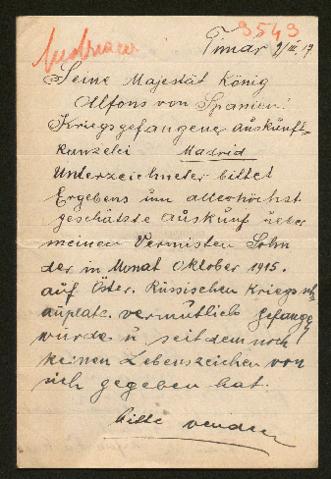 3543
Timar 9/III. 17
Seine Majestät König
Alfons von Spanien!
Kriegsgefangene Auskunft-
kanzelei Madrid
Unterzeichneter bittet
Ergebens um allerhöchst
geschätzte Auskunf ueber
meinen Vermisten Sohn
der in Monat Oktober 1915.
auf Öster. Russischen Kriegssch
auplatz. vermutlich gefangen
wurde u seit dem noch
keinen Lebenszeichen von
sich gegeben hat.
bitte wenden